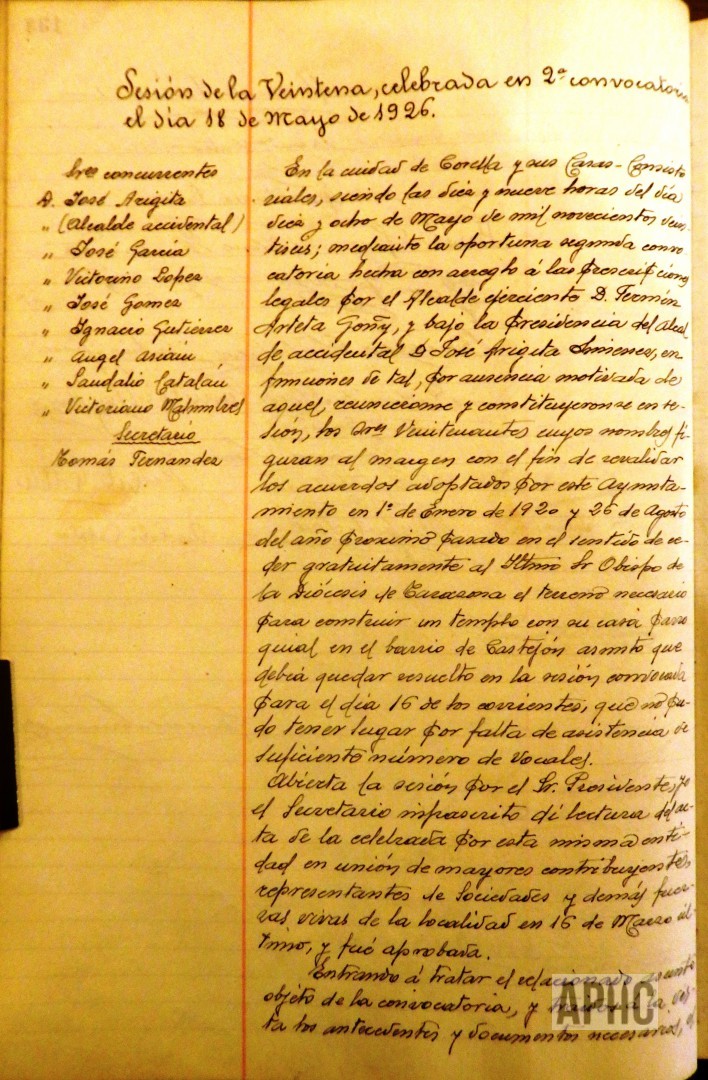 Sesión de la Veintena, celebrada en 2ª convocatoria
el día 18 de Mayo de 1926.
Sres concurrentes
D. José Arigita
" (Alcalde accidental)
" José García
" Victorino Lopez
" José Gomez
" Ignacio Gutierrez
" Angel Asiáin
" Saudalio Catalán
" Victoriano Malumbres
Secretario
Tomás Fernandez
En la ciudad de Corella y sus Casas-Consisto
riales, siendo las diez y nueve horas del día
diez y ocho de Mayo de mil novecientos vein-
tiseis; mediante la oportuna segunda convo
catoria hecha con arreglo á las prescripciones
legales por el Alcalde ejerciente D. Fermín
Arteta Goñy, y bajo la presidencia del Alcal
de accidental D José Arigita Jimenez, en
funciones de tal, por ausencia motivada de
aquel, reunieronse y constituyeronse en se-
sión, los Sres Veintenantes cuyos nombres fi-
guran al margen con el fin de revalidar
los acuerdos adoptados por este Ayunta-
miento en 1º de Enero de 1920 y 26 de Agosto
del año proximo pasado en el sentido de ce-
der gratuitamente al Iltmo Sr Obispo de
la Diócesis de Tarazona el terreno necesario
para construir un templo con su casa parro
quial en el barrio de Castejón asunto que
debía quedar resuelto en la sesión convocada
para el día 16 de los corrientes, que no pu-
do tener lugar por falta de asistencia de
suficiente número de Vocales.
Abierta la sesión por el Sr. Presidente, yo
el Secretario infrascrito dí lectura del ac-
ta de la celebrada por esta misma enti-
dad en unión de mayores contribuyentes
representantes de Sociedades y demás fuer-
zas vivas de la localidad en 16 de Marzo úl-
timo, y fué aprobada.
Entrando á tratar el relacionado asunto
objeto de la convocatoria, y á la vis-
ta los antecedentes y documentos necesarios,
APHC